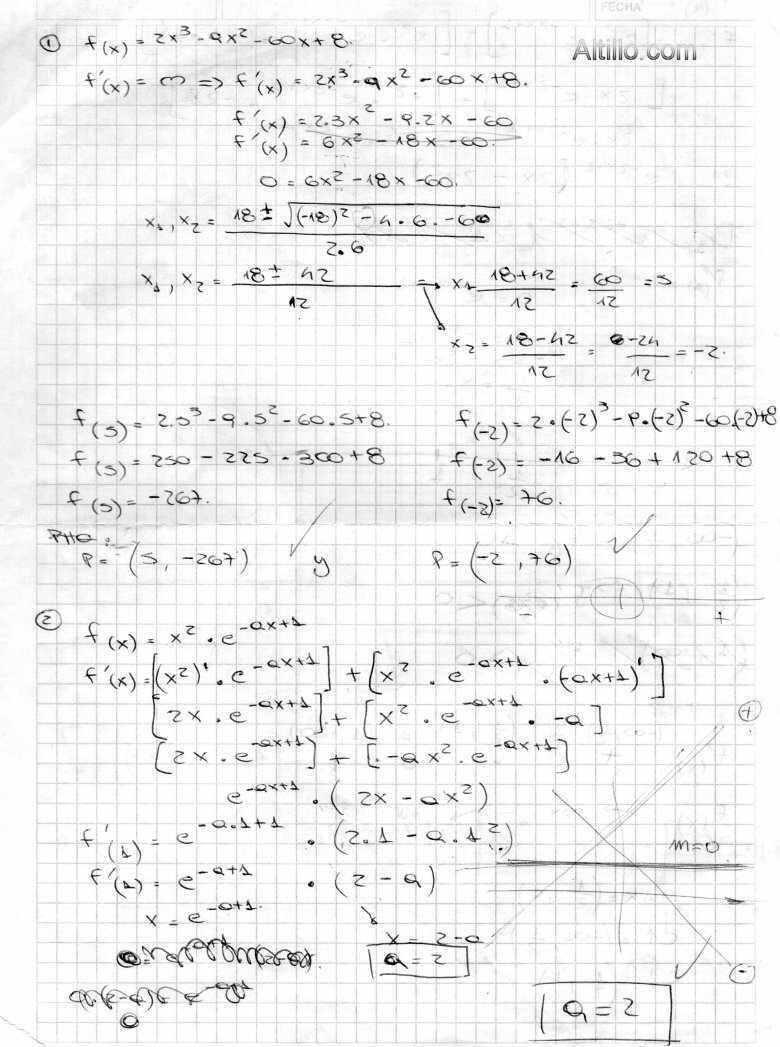 FECHA
Altillo.com
① f(x) = 2x³ - 9x² - 60x + 8.
f'(x) = m => f'(x) = 2x³ - 9x² - 60x + 8.
f'(x) = 2.3x² - 9.2x - 60
f'(x) = 6x² - 18x - 60.
0 = 6x² - 18x - 60.
x₁, x₂ = (18 ± √((-18)² - 4 . 6 . -60)) / 2.6
x₁, x₂ = (18 ± 42) / 12 => x₁ (18+42) / 12 = 60 / 12 = 5
x₂ = (18-42) / 12 = -24 / 12 = -2.
f(5) = 2.5³ - 9.5² - 60.5 + 8.
f(-2) = 2.(-2)³ - 9.(-2)² - 60.(-2) + 8
f(5) = 250 - 225 - 300 + 8
f(-2) = -16 - 36 + 120 + 8
f(5) = -267.
f(-2) = 76.
P = (5, -267) y P = (-2, 76)
- 1 +
② f(x) = x² . e^(-ax+1)
f'(x) = [(x²)' . e^(-ax+1)] + [x² . e^(-ax+1) . (-ax+1)']
[2x . e^(-ax+1)] + [x² . e^(-ax+1) . -a]
[2x . e^(-ax+1)] + [. -ax² . e^(-ax+1)]
e^(-ax+1) . (2x - ax²)
f'(1) = e^(-a.1+1) . (2.1 - a.1²)
f'(1) = e^(-a+1) . (2 - a)
x = e^(-a+1).
x = 2-a
a = 2
a = 2
+
m=0
-